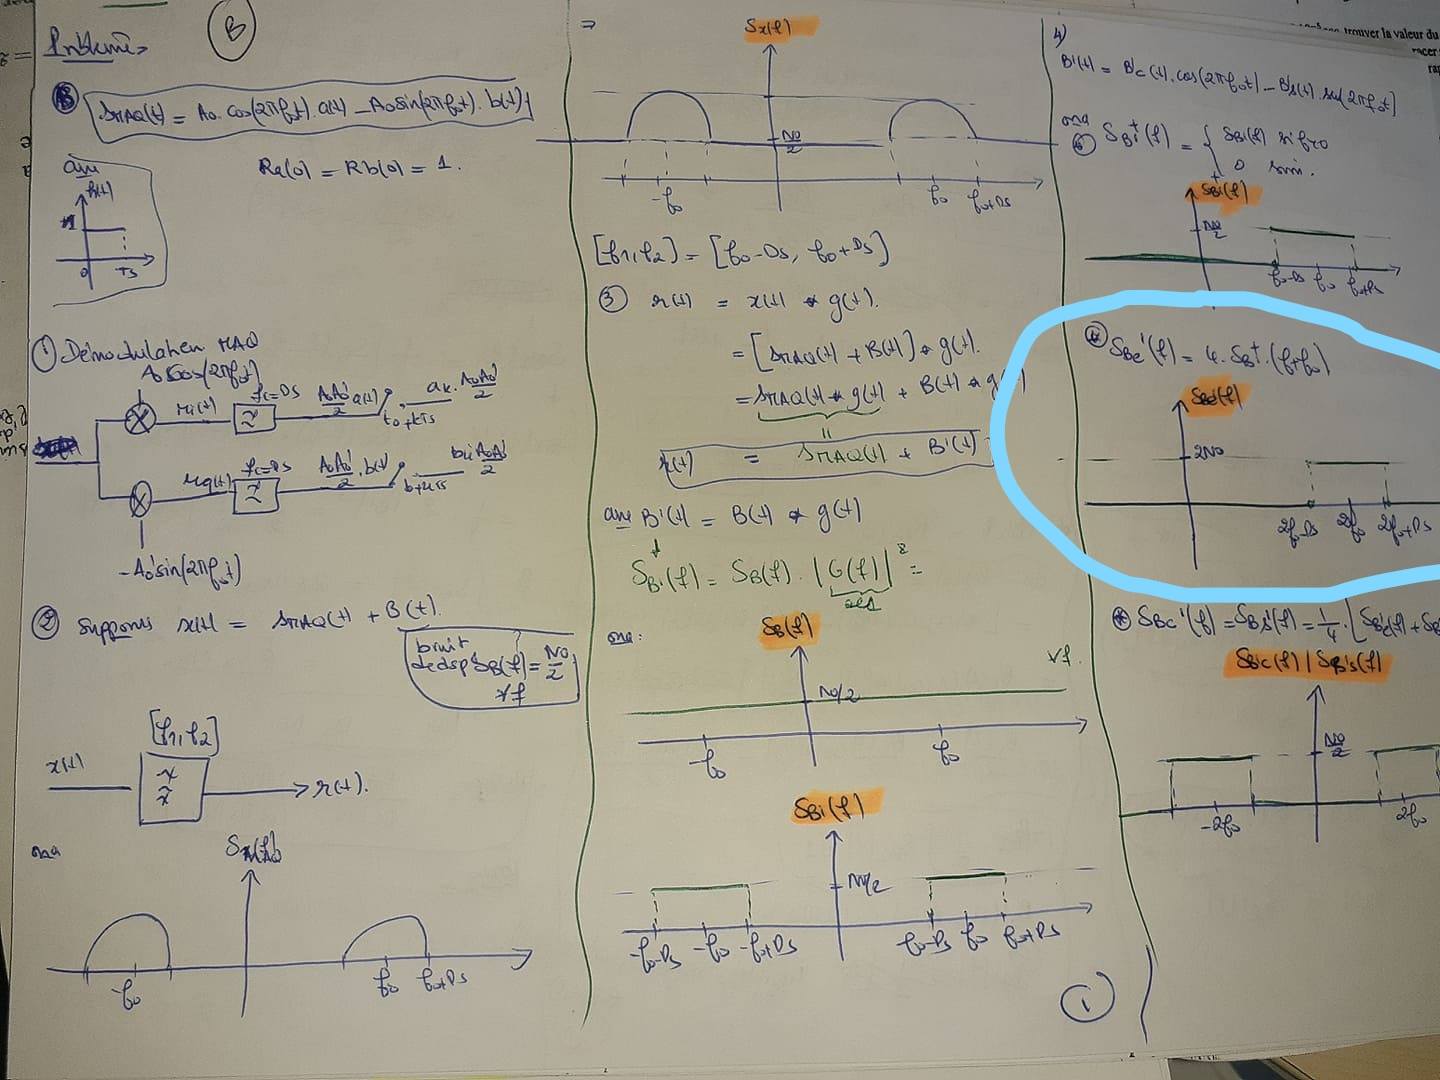 B
Problème
B
SMAQ(t) = A0. cos(2πf0t). a(t) - A0 sin(2πf0t). b(t)
avec
h(t)
1
0
Ts
Ra(0) = Rb(0) = 1.
① Démodulation MAQ
A0'cos(2πf0t)
ri(t)
fc=Ds
A0A0'/2 a(t)
t0+kTs
ak. A0A0'/2
rq(t)
fc=Ds
A0A0'/2 . b(t)
bk A0A0'/2
-A0'sin(2πf0t)
② Supposons x(t) = SMAQ(t) + B(t)
bruit
de dsp SB(f) = N0/2
∀f
[f1,f2]
x(t)
r(t).
ona
-f0
f0
f0+Ds
⇒
Sx(f)
N0/2
-f0
f0
f0+Ds
[f1,f2] = [f0-Ds, f0+Ds]
③ r(t) = x(t) * g(t).
= [SMAQ(t) + B(t)] * g(t).
= SMAQ(t) * g(t) + B(t) * g(t)
r(t) = SMAQ(t) + B'(t)
avec B'(t) = B(t) * g(t)
SB'(f) = SB(f). |G(f)|² =
ona:
SB(f)
∀f.
N0/2
-f0
f0
SB'(f)
N0/2
-f0-Ds
-f0
-f0+Ds
f0-Ds
f0
f0+Ds
1
4)
B'(t) = B'c(t). cos(2πf0t) - B's(t). sin(2πf0t)
ona
* SB'+(f) = { SB'(f) si f≥0
0 sinon.
SB'+(f)
N0/2
f0-Ds
f0
f0+Ds
* SBe'(f) = 4. SB'+. (f+f0)
SBe'(f)
2N0
2f0-Ds
2f0
2f0+Ds
* SBc'(f) = SBs'(f) = 1/4 . [SBe'(f) + SB
SB'c(f) | SB's(f)
N0/2
-2f0
2f0
trouver la valeur du
racer